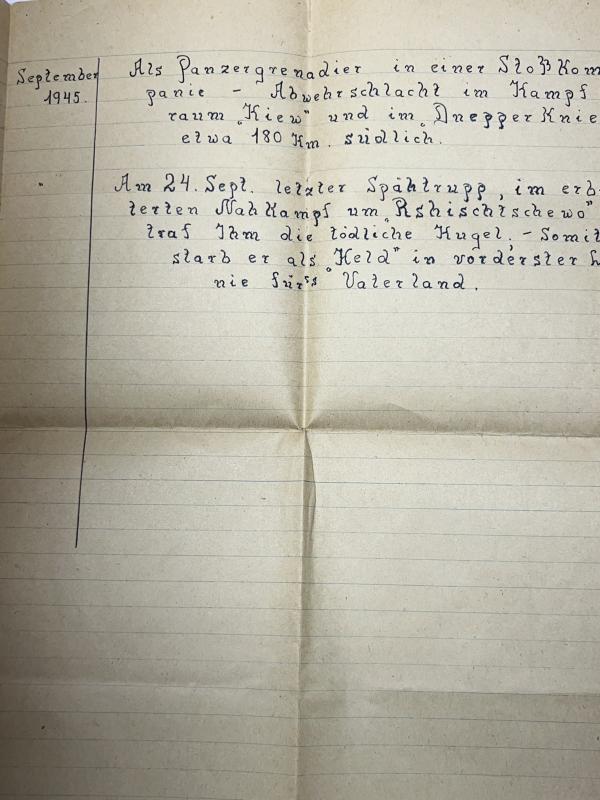 September Als Panzergrenadier in einer Stoßkom
1945. panie - Abwehrschlacht im Kampf
raum „Kiew" und im „Dnepper Knie
etwa 180 Km. südlich.
" Am 24. Sept. letzter Spähtrupp, im erb-
terten Nahkampf um „Rshischtschewo"
traf Ihm die tödliche Kugel. - Somit
starb er als „Held" in vorderster L
nie für's Vaterland.